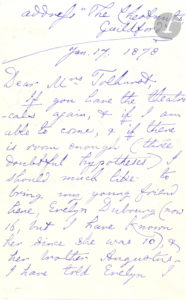 address "The Chestnuts,
Guildford
Jan. 17. 1878
Dear Mrs Tolhurst,
If you have the theatri-
-cals again, & if I am
able to come, & if there
is room enough (three
doubtful hypotheses) I
should much like to
bring my young friend
here, Evelyn Dubourg (now
16, but I have known
her since she was 10), &
her brother Augustus—
I have told Evelyn I